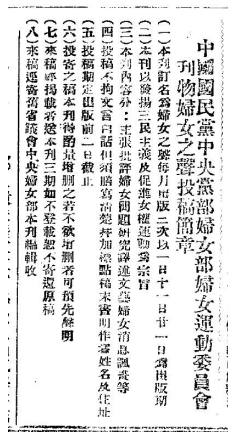 中國國民黨中央黨部婦女部婦女運動委員會
刊物婦女之聲投稿簡章
(一)本刊訂名爲婦女之聲每月出版二次以一日十一日廿一日爲出版期
(二)本刊以發揚三民主義及促進女權運動爲宗旨
(三)本刊內容分：主張批評婦女問題研究譯述文藝婦女消息諷刺等
(四)投稿不拘文言白話但須謄寫清楚并加標點稿末書明作者姓名及住址
(五)投稿期定出版前二日截止
(六)投寄之稿本刊得酌量增删之若不欲增删者可預先聲明
(七)來稿經揭載者送本刊三期如不登載恕不寄還原稿
(八)來稿逕寄舊省議會中央婦女部本刊編輯收